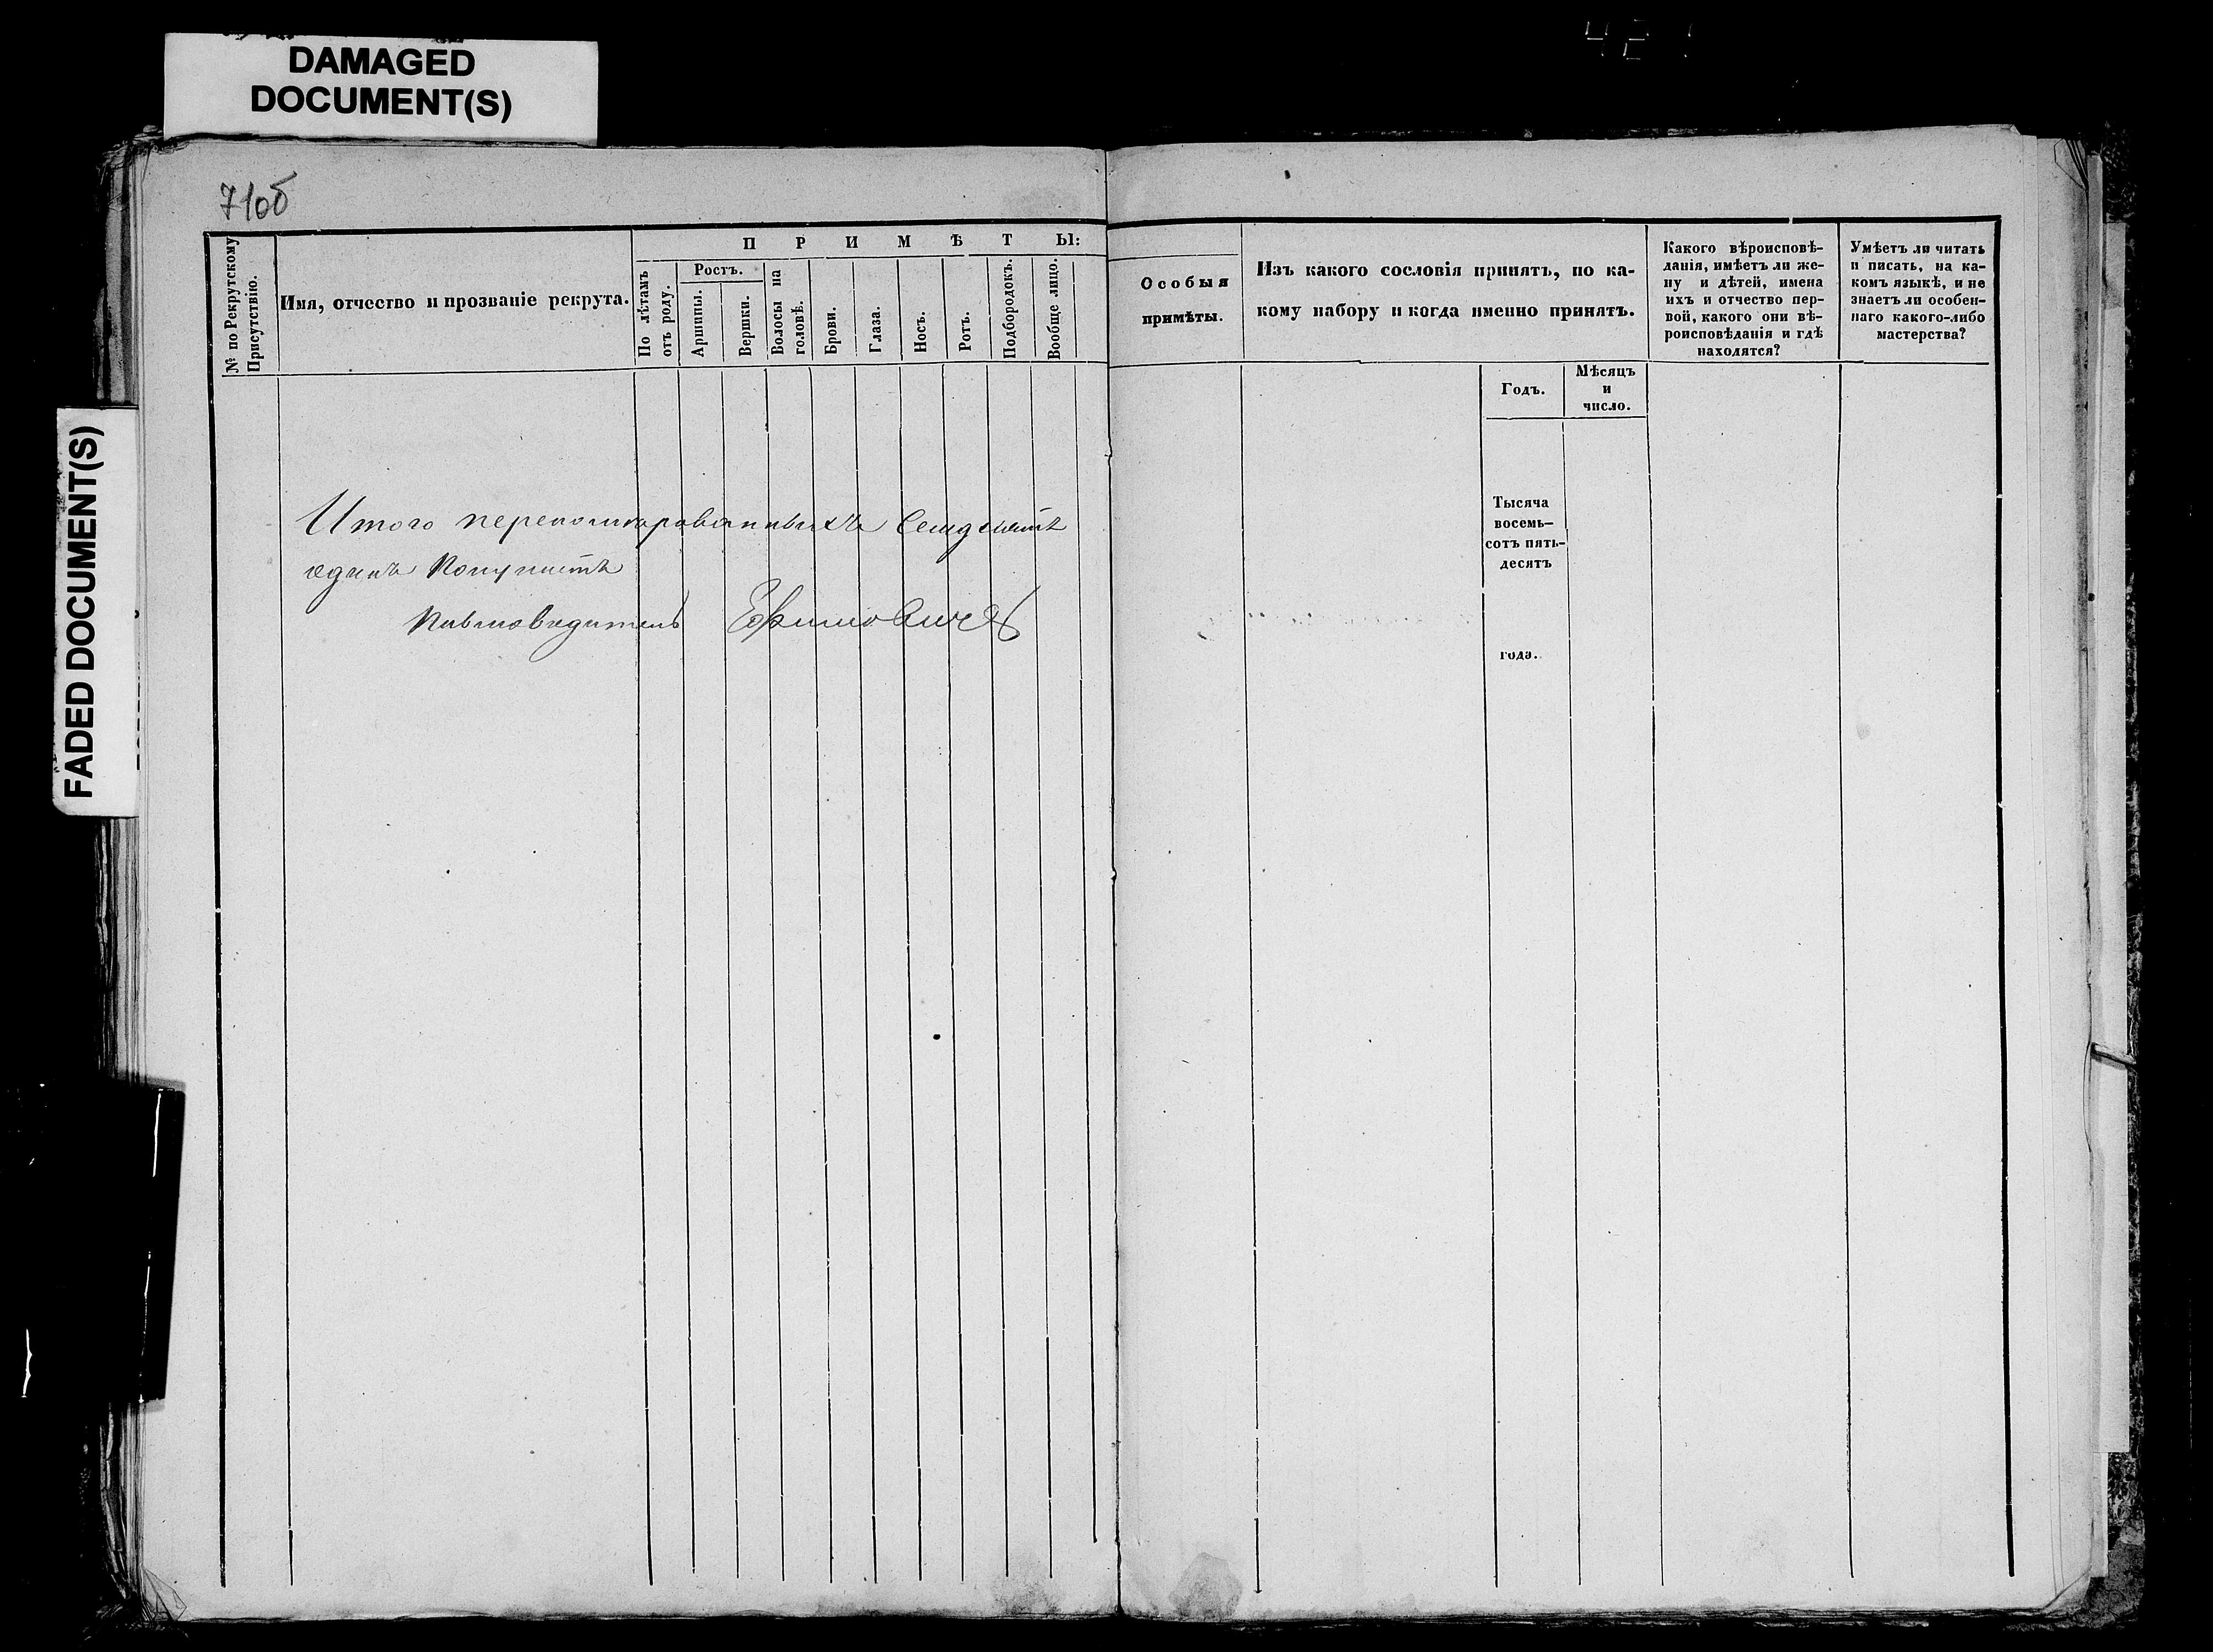 DAMAGED
DOCUMENT(S)
421
FADED DOCUMENT(S)
71об
№ по Рекрутскому
Присутствію.
Имя, отчество и прозваніе рекрута.
ПРИМѢТЫ:
По лѣтамъ
отъ роду.
Ростъ.
Аршины.
Вершки.
Волосы на
головѣ.
Брови.
Глаза.
Носъ.
Ротъ.
Подбородокъ.
Вообще лицо.
Особыя
примѣты.
Изъ какого сословія принятъ, по ка-
кому набору и когда именно принятъ.
Годъ.
Мѣсяцъ
и
число.
Какого вѣроисповѣ-
данія, имѣетъ ли же-
ну и дѣтей, имена
ихъ и отчество пер-
вой, какого они вѣ-
роисповѣданія и гдѣ
находятся?
Умѣетъ ли читать
и писать, на ка-
комъ языкѣ, и не
знаетъ ли особен-
наго какого-либо
мастерства?
Итого перенумерованныхъ Семдсятъ
одинъ
Письмоводитель Ефимовичъ
Тысяча
восемь-
сотъ пять-
десятъ
года.